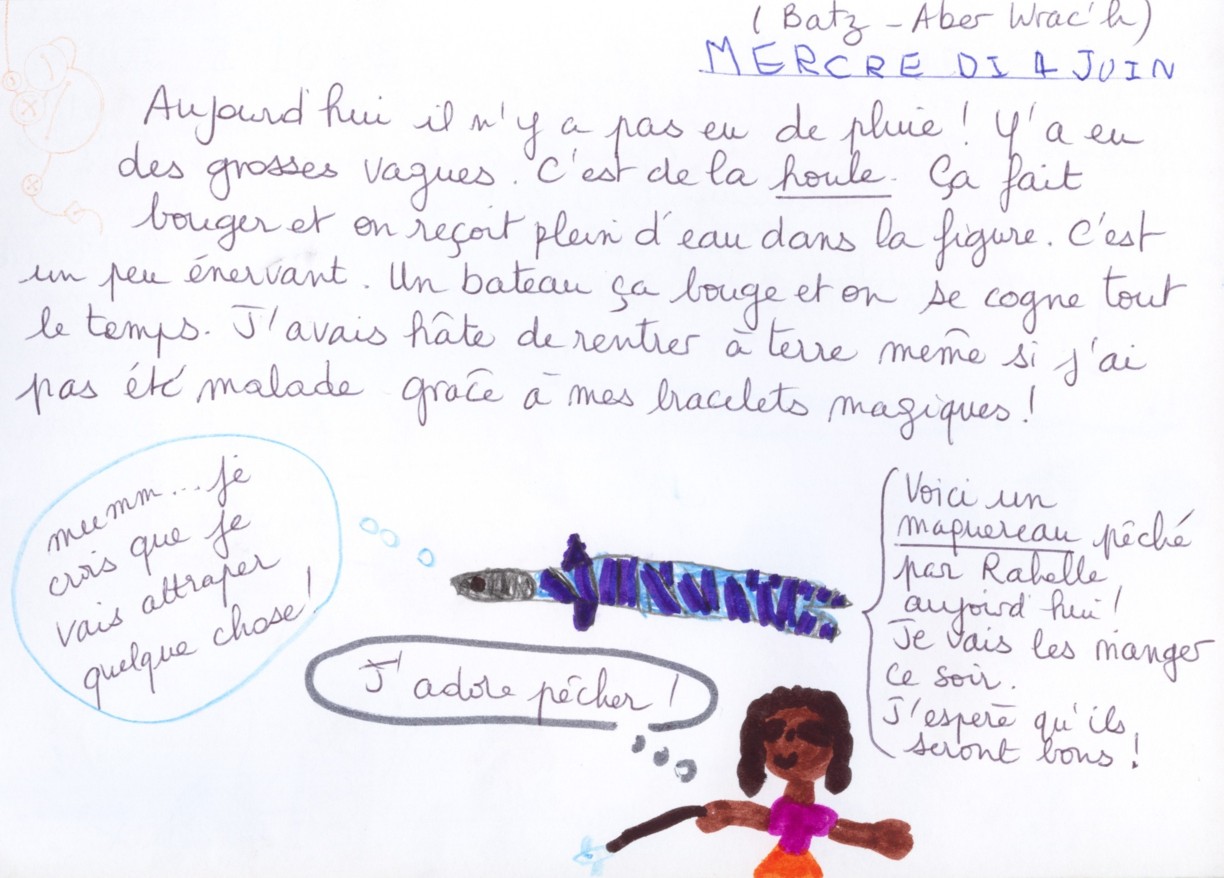 (Batz - Aber Wrac'h)
MERCREDI 4 JUIN
Aujourd'hui il n'y a pas eu de pluie ! Y'a eu
des grosses vagues. C'est de la houle. Ça fait
bouger et on reçoit plein d'eau dans la figure. C'est
un peu énervant. Un bateau ça bouge et on se cogne tout
le temps. J'avais hâte de rentrer à terre même si j'ai
pas été malade grâce à mes bracelets magiques !
mumm... je
crois que je
vais attraper
quelque chose !
J'adore pêcher !
Voici un
maquereau pêché
par Rabelle
aujourd'hui !
Je vais les manger
ce soir.
J'espère qu'ils
seront bons !